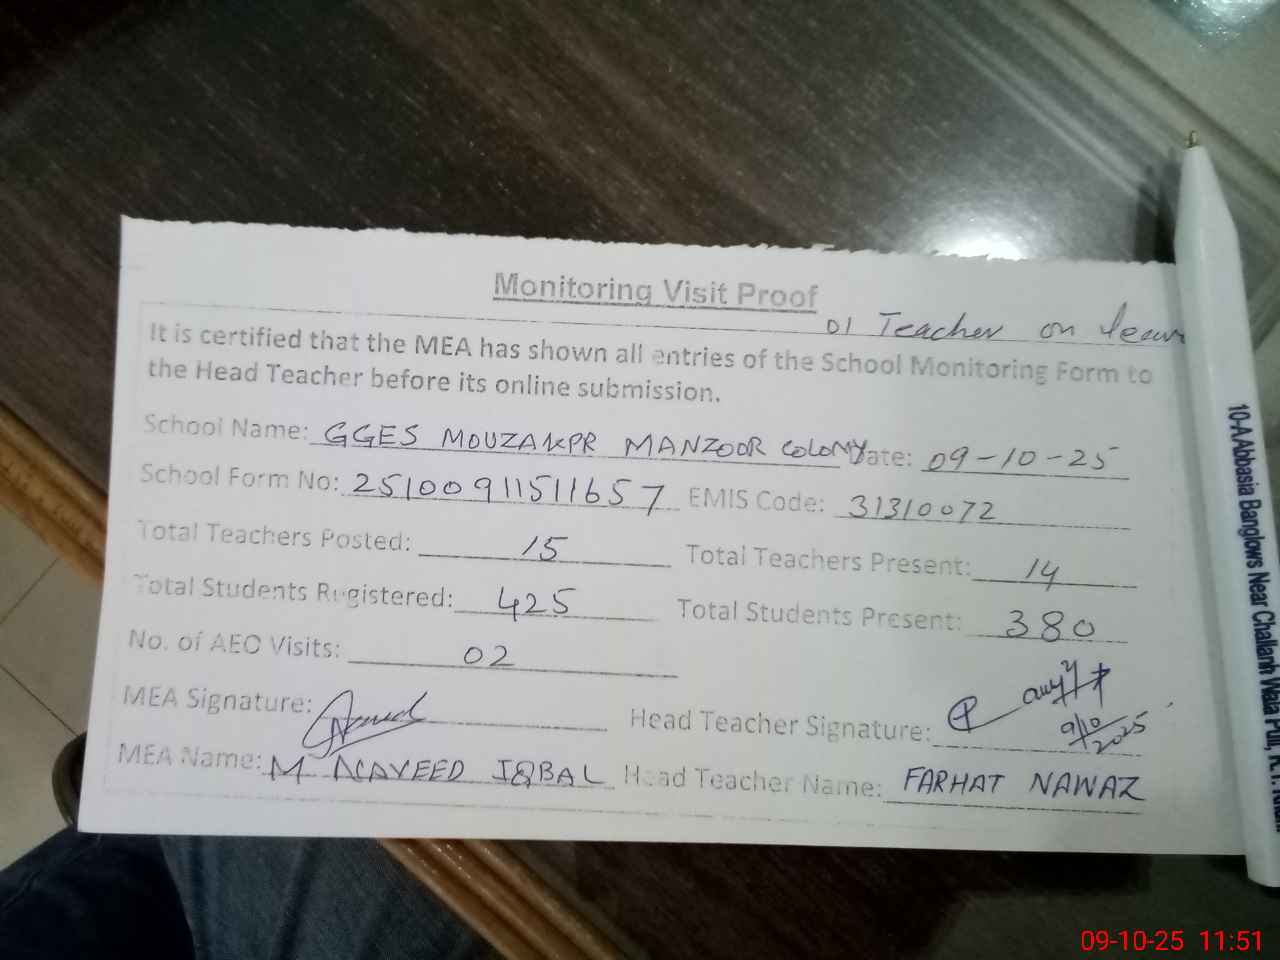 Monitoring Visit Proof
01 Teacher on leave
It is certified that the MEA has shown all entries of the School Monitoring Form to
the Head Teacher before its online submission.
School Name: GGES MOUZAKPR MANZOOR COLONY Date: 09-10-25
School Form No: 25100911511657 EMIS Code: 31310072
Total Teachers Posted: 15 Total Teachers Present: 14
Total Students Registered: 425 Total Students Present: 380
No. of AEO Visits: 02
MEA Signature: Head Teacher Signature:
9/10/2025
MEA Name: M NAVEED IQBAL Head Teacher Name: FARHAT NAWAZ
10-A Abbasia Banglows Near Challanh Wala Pull,
09-10-25 11:51